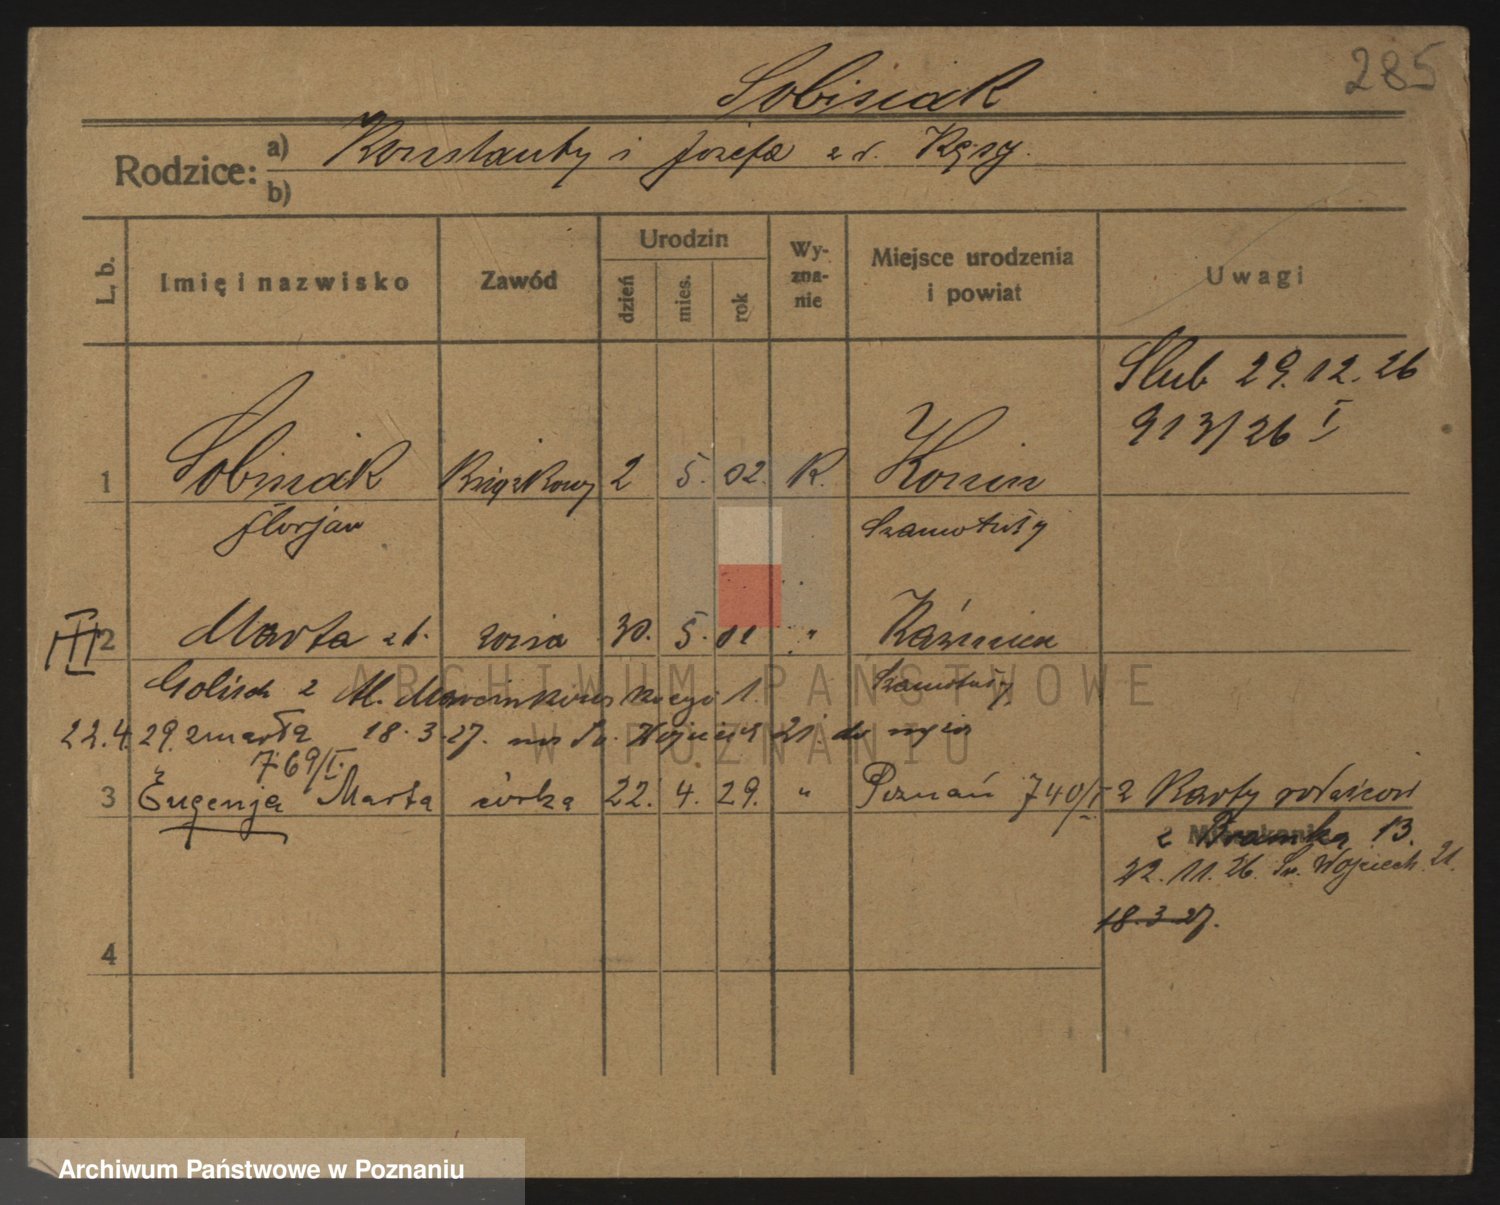 285
Sobisiak
Rodzice: a) Konstanty i Józefa z d. Kęsy.
b)
L. b. Imię i nazwisko Zawód Urodzin dzień mies. rok Wy-zna-nie Miejsce urodzenia i powiat Uwagi
Ślub 29.12.26
913/26 I
1 Sobisiak Książkowy 2 5. 02. K. Konin
Florjan Szamotuły
III 2 Marta z d. żona 30. 5. 01 " Kaźmierz
Golisch z M. Marcinkowskiego 1. Szamotuły
22.4.29. zmarła 18.3.27. na Św. Wojciech 21 do
769/I.
3 Eugenja Marta córka 22. 4. 29. " Poznań 740/I z Karty rodziców
Mieszkanie
z 13.
22.11.26. Św. Wojciech 21.
18.3.27.
4
ARCHIWUM PAŃSTWOWE
W POZNANIU
Archiwum Państwowe w Poznaniu